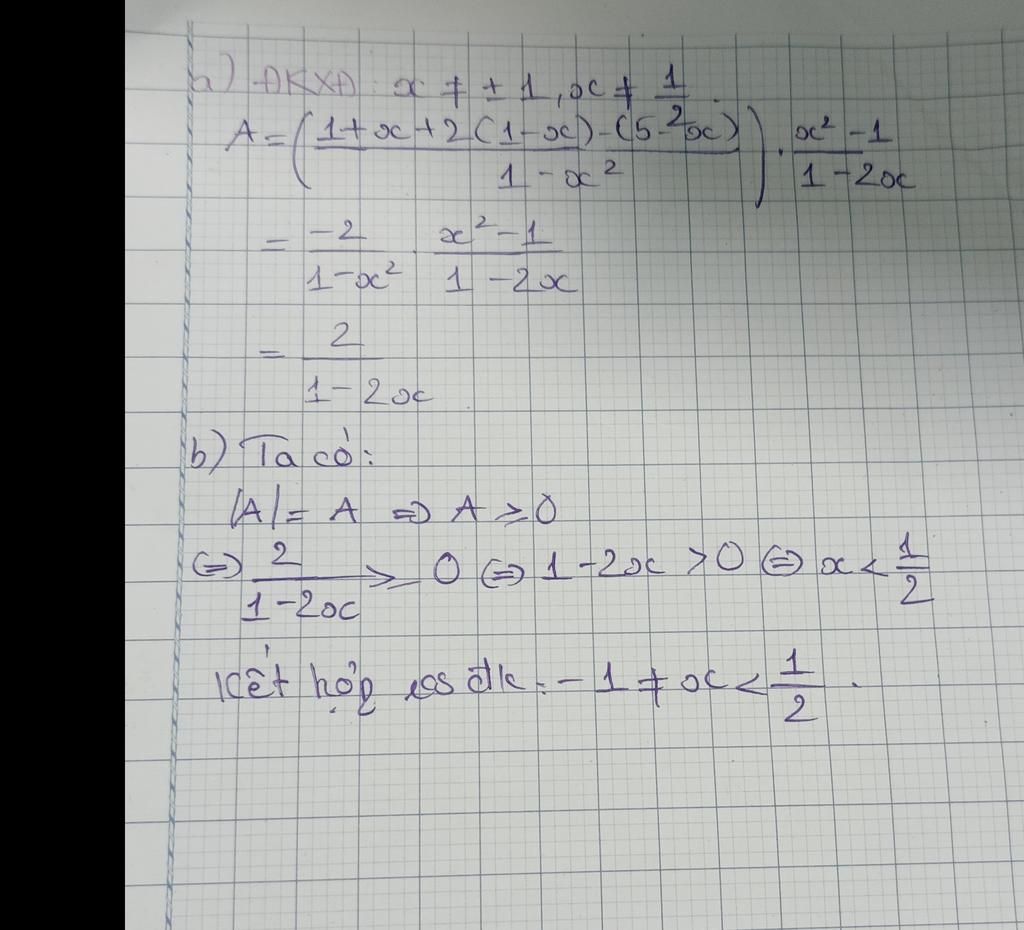 a) ĐKXĐ: x ≠ ± 1, x ≠ 1/2.
A = ( (1 + x + 2(1 - x) - (5 - x)) / (1 - x²) ) . (x² - 1) / (1 - 2x)
= -2 / (1 - x²) . (x² - 1) / (1 - 2x)
= 2 / (1 - 2x)
b) Ta có:
|A| = A ⇒ A ≥ 0
⇔ 2 / (1 - 2x) ≥ 0 ⇔ 1 - 2x > 0 ⇔ x < 1/2
Kết hợp đk: - 1 ≠ x < 1/2.